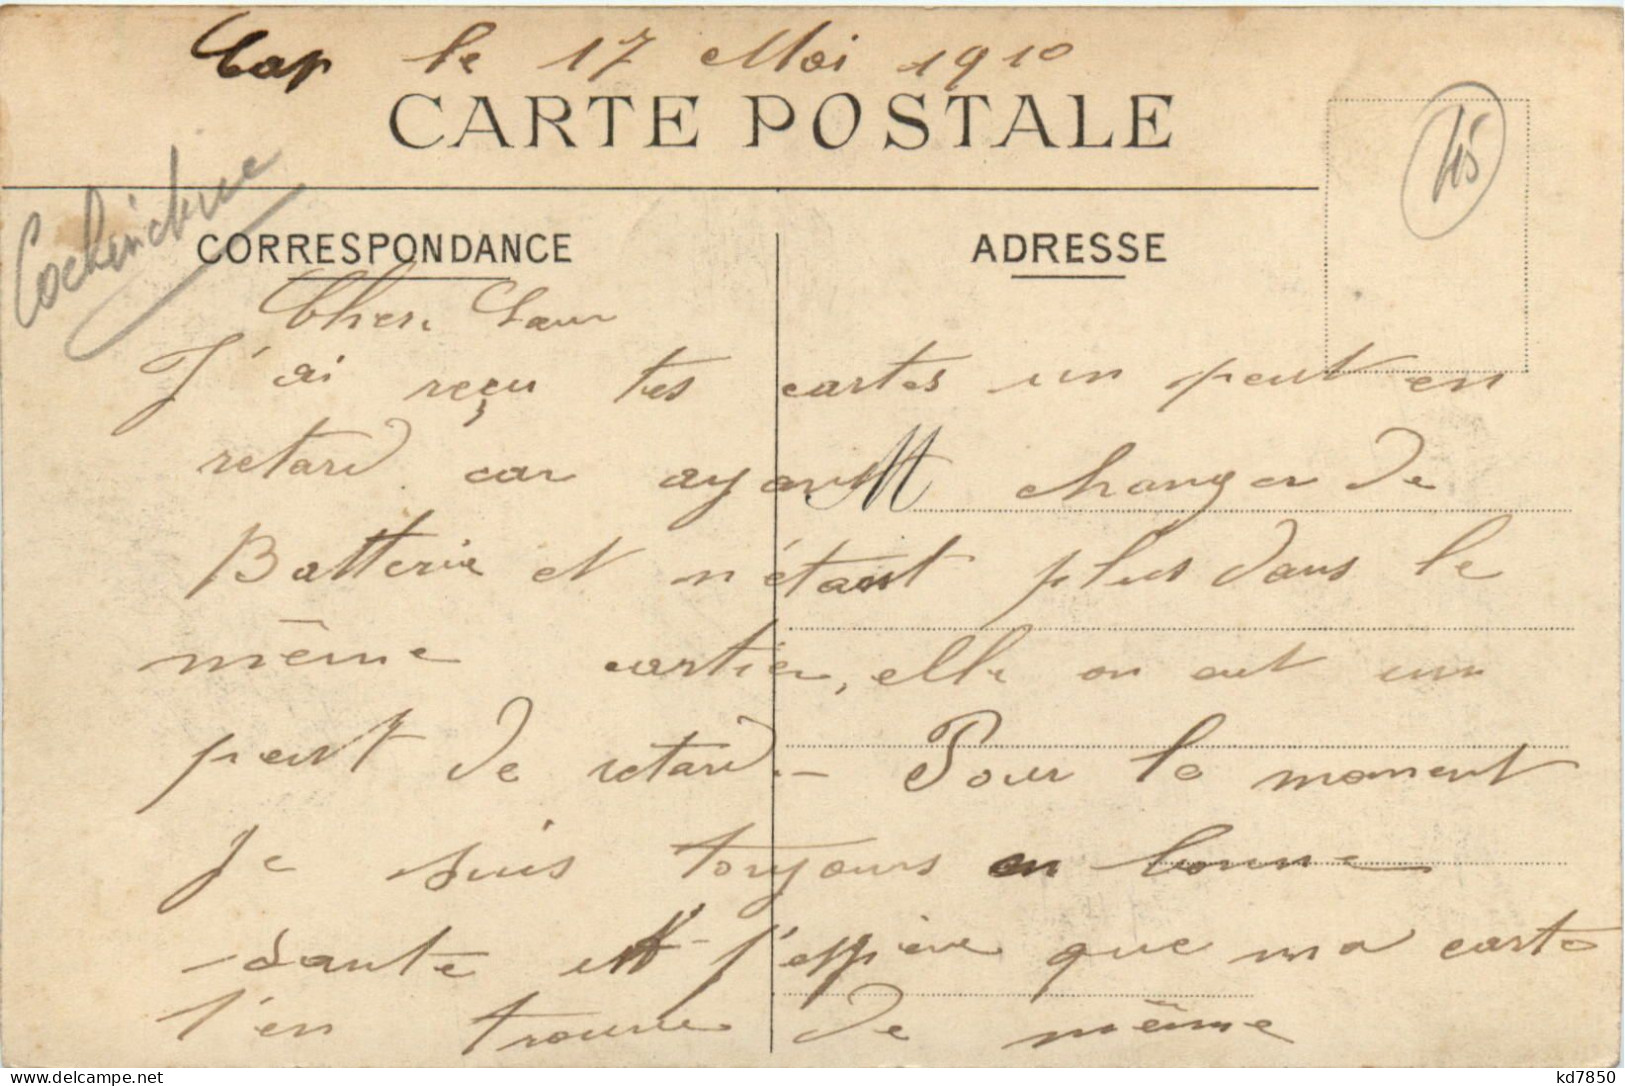 Cap le 17 Mai 1910
CARTE POSTALE
45
Cochinchine
CORRESPONDANCE
ADRESSE
Chere Sœur
J'ai reçu tes cartes un peut en
retard car ayant changer de
M
Batterie et n'étant plus dans le
même cartier, elle on eut un
peut de retard. – Pour le moment
je suis toujours en bonne
sante et j'espère que ma carte
t'en trouve de même
kd7850